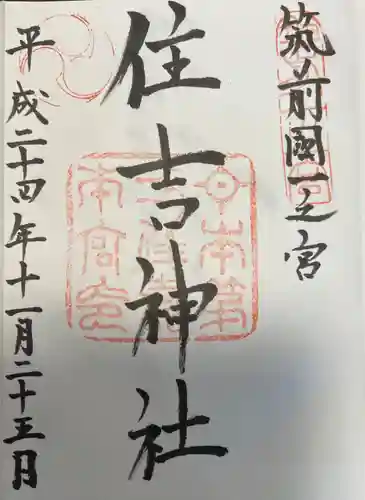 筑前國一之宮
住吉神社
平成二十四年十一月二十五日